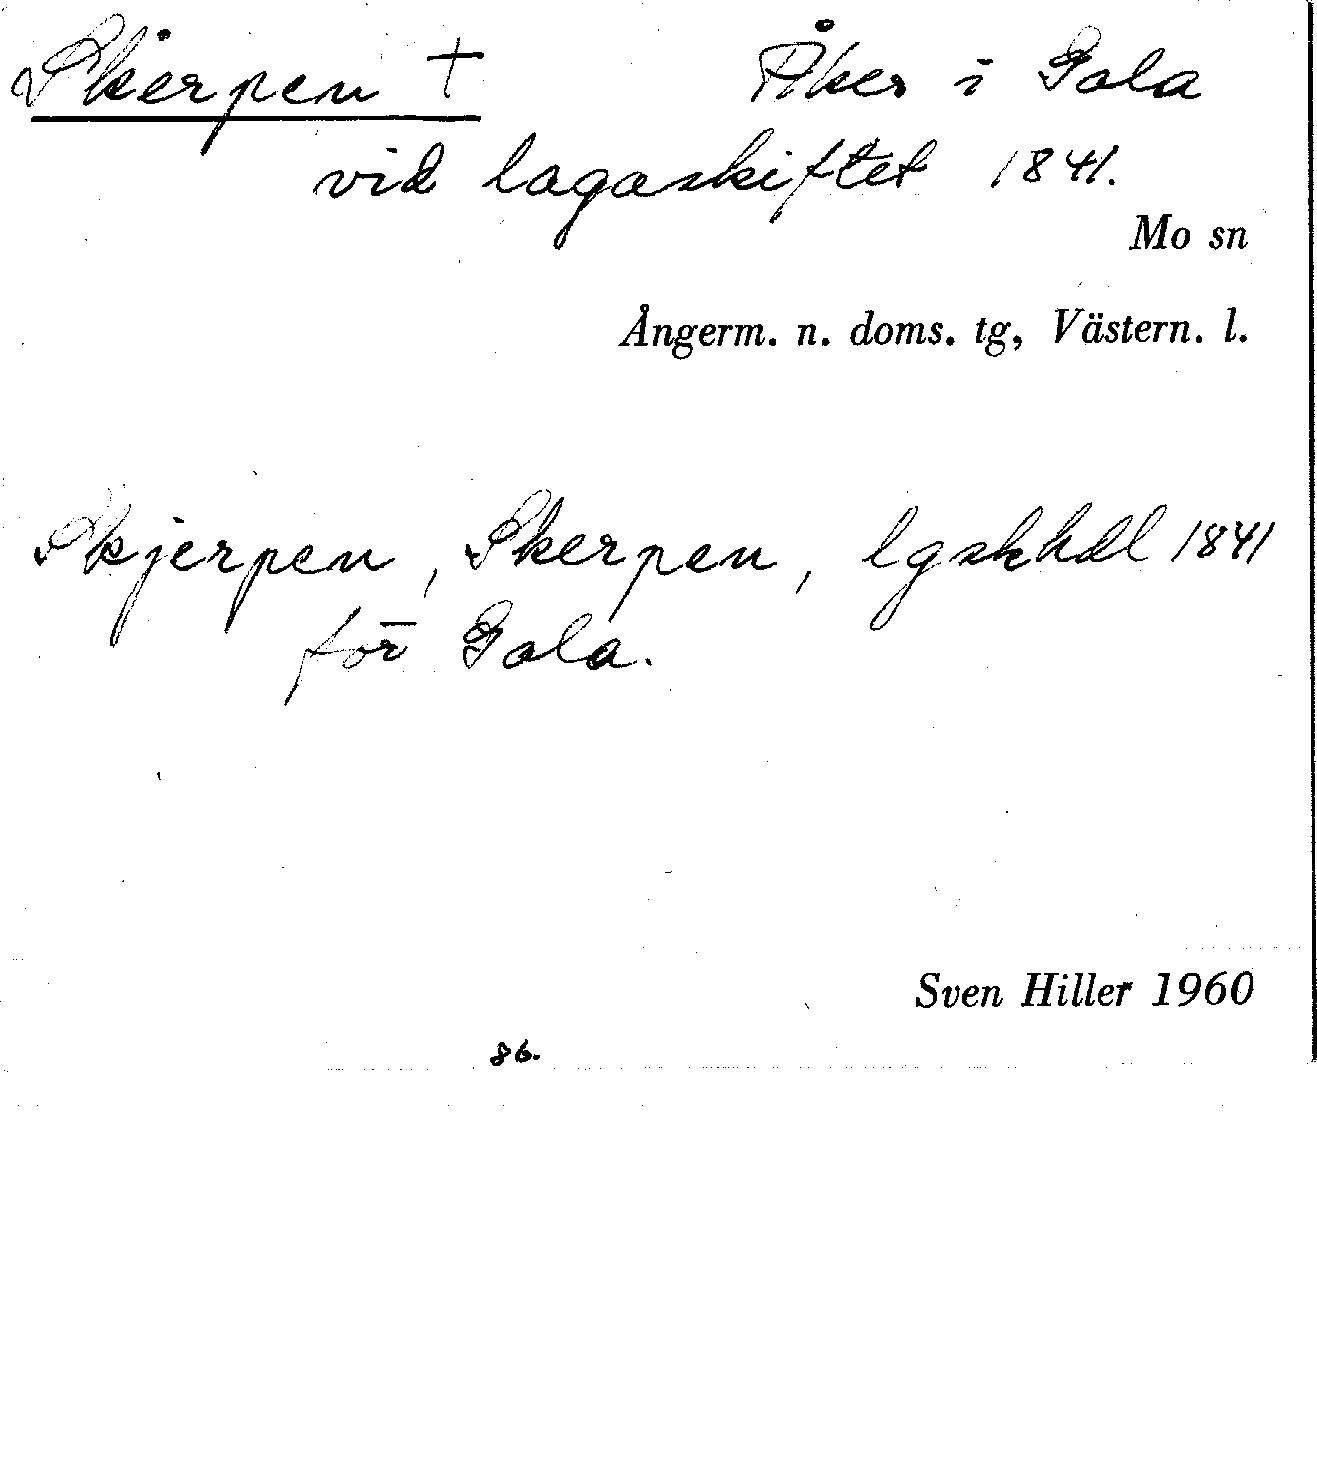 Skerpen + Åker i Gala
vid lagaskiftet 1841.
Mo sn
Ångerm. n. doms. tg, Västern. l.
Skjerpen, Skerpen, lgskhdl 1841
för Gala.
Sven Hiller 1960
86.